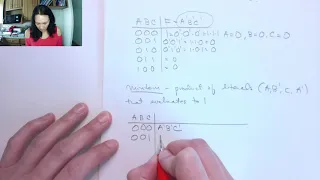 A B C | = A'B'C'
0 0 0 | 1 = 0'·0'·0' = 1·1·1 = 1 A=0, B=0, C=0
0 0 1 | 0'·0'·1' = 1·1·0 = 0
0 1 0 | 0'·1'·0' = 1·0·1 = 0
0 1 1 = 0
1 0 0 = 0
minterm - product of literals (A, B', C, A')
that evaluates to 1
A B C
0 0 0 | A'B'C'
0 0 1